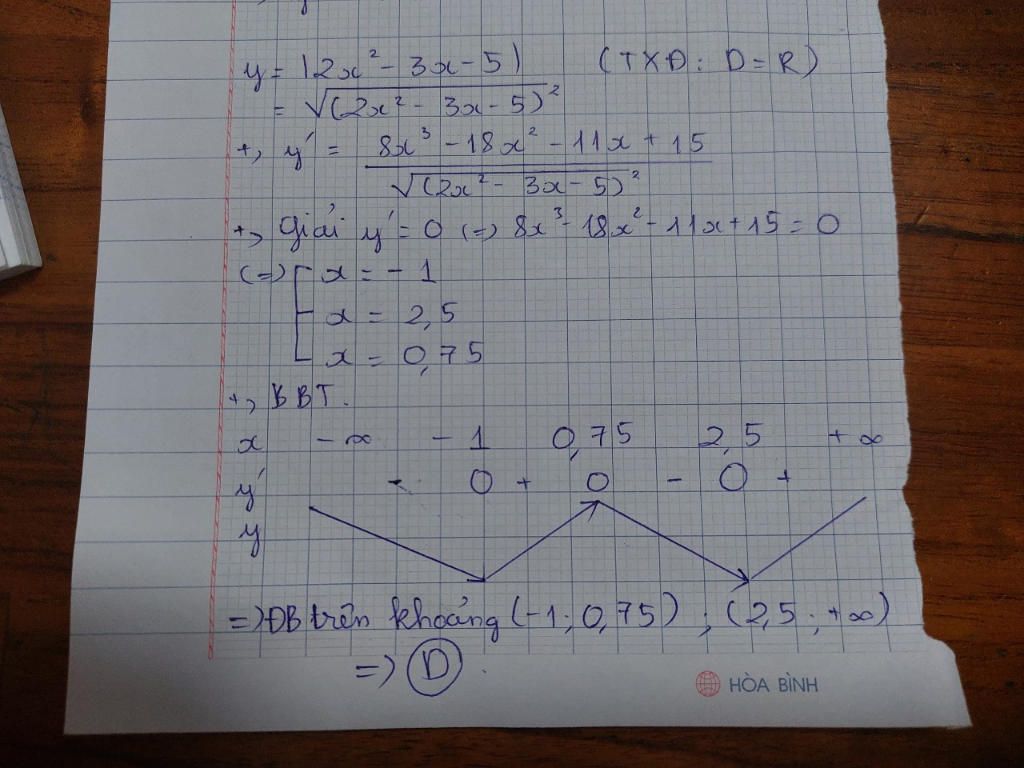 y = |2x² - 3x - 5| (TXĐ: D = R)
= √(2x² - 3x - 5)²
+, y' = 8x³ - 18x² - 11x + 15
√(2x² - 3x - 5)²
+, Giải y' = 0 (=) 8x³ - 18x² - 11x + 15 = 0
(=) [ x = - 1
x = 2,5
x = 0,75
+, BBT.
x - ∞ - 1 0,75 2,5 + ∞
y' - 0 + 0 - 0 +
y
=) ĐB trên khoảng (-1; 0,75) ; (2,5 ; +∞)
=) D.
HÒA BÌNH